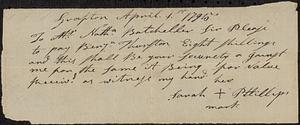 Grafton April 1st 1796
To Mr Nathn Batchelder Sir Please
to pay Benjn Thurston Eight shillings
and this shall Be your security against
me for the same it Being for Value
Received as witness my hand
her
Sarah + Phillips
mark